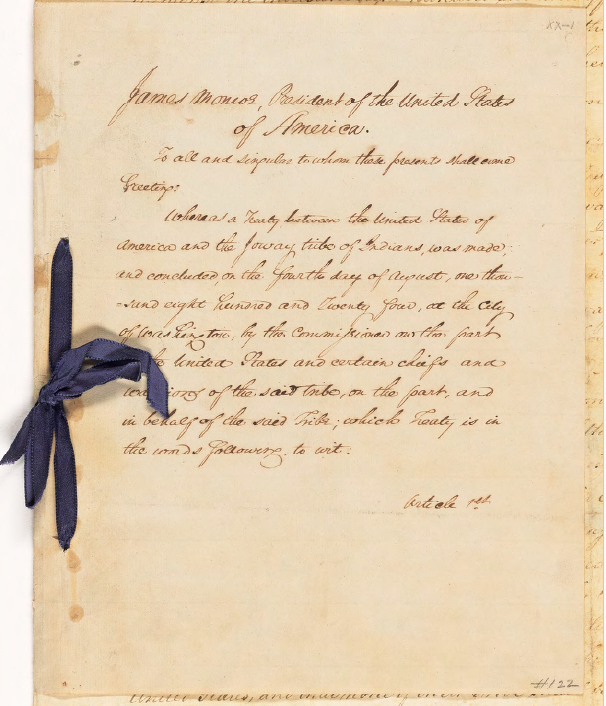 XX-1
James Monroe, President of the United States
of America.
To all and singular to whom these presents shall come
Greeting:
Whereas a Treaty between the United States of
America and the Ioway tribe of Indians, was made;
and concluded, on the fourth day of August, one thou-
-sand eight hundred and Twenty four, at the City
of Washington, by the Commissioner on the part
United States and certain chiefs and
of the said tribe, on the part, and
in behalf of the said Tribe; which Treaty is in
the words following, to wit:
Article 1st
#122
United States, and